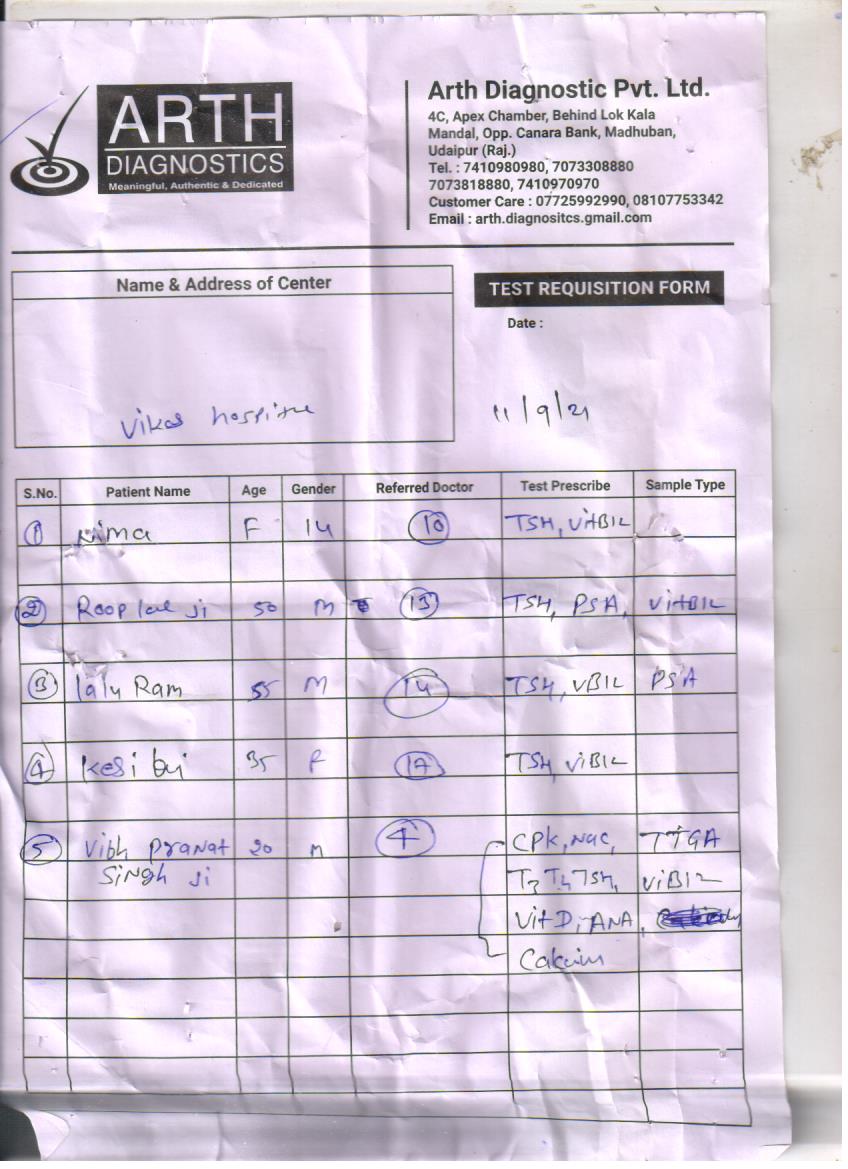 ARTH
DIAGNOSTICS
Meaningful, Authentic & Dedicated
Arth Diagnostic Pvt. Ltd.
4C, Apex Chamber, Behind Lok Kala
Mandal, Opp. Canara Bank, Madhuban,
Udaipur (Raj.)
Tel. : 7410980980, 7073308880
7073818880, 7410970970
Customer Care : 07725992990, 08107753342
Email : arth.diagnositcs.gmail.com
Name & Address of Center
TEST REQUISITION FORM
Date :
Vikas hospital
11/9/21
S.No. Patient Name Age Gender Referred Doctor Test Prescribe Sample Type
1 Nima F 14 10 TSH, VitB12
2 Roop lal ji 50 M 13 TSH, PSA, VitB12
3 lalu Ram 55 M 14 TSH, VB12 PSA
4 Kesi bai 35 F 17 TSH, ViB12
5 Vibh Pranat 20 M 4 CPK, TTGA
Singh Ji T3 T4 TSH, ViB12
Vit D, ANA,
Calcium